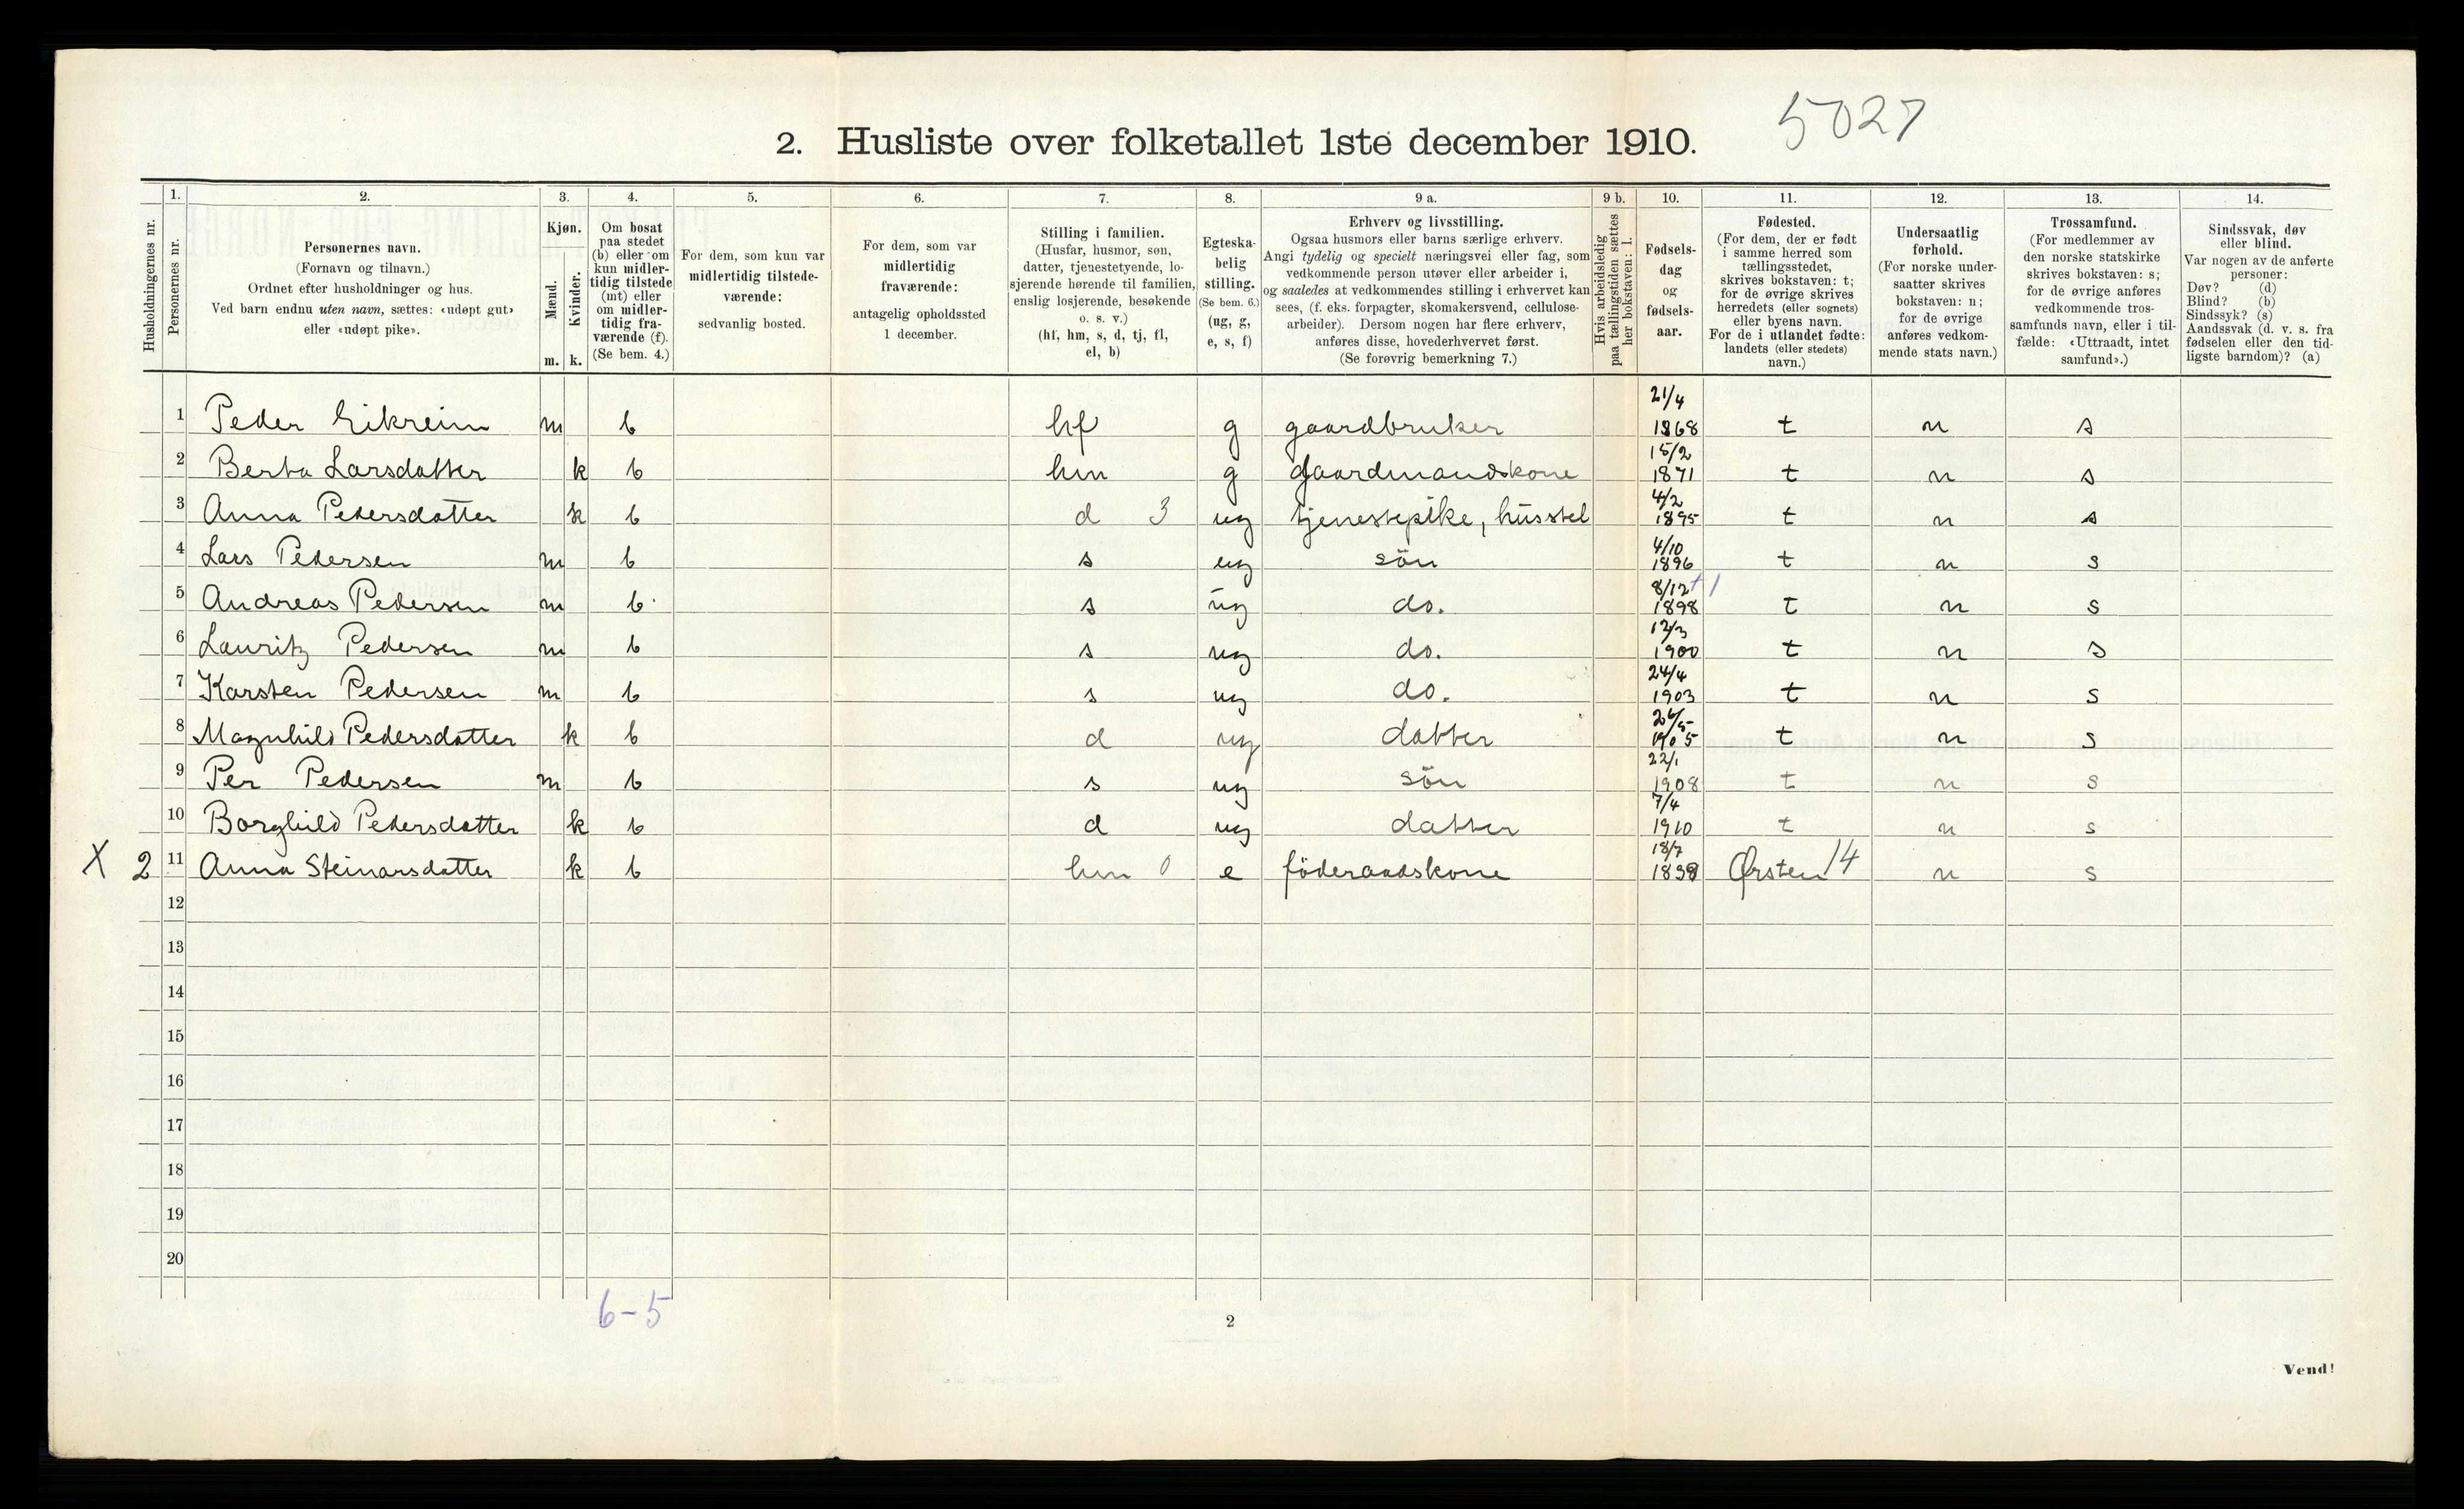 5027
2. Husliste over folketallet 1ste december 1910.
Husholdningernes nr.
1. Personernes nr.
2. Personernes navn. (Fornavn og tilnavn.) Ordnet efter husholdninger og hus. Ved barn endnu uten navn, sættes: «udøpt gut» eller «udøpt pike».
3. Kjøn. Mænd. m. Kvinder. k.
4. Om bosat paa stedet (b) eller om kun midlertidig tilstede (mt) eller om midlertidig fraværende (f). (Se bem. 4.)
5. For dem, som kun var midlertidig tilstedeværende: sedvanlig bosted.
6. For dem, som var midlertidig fraværende: antagelig opholdssted 1 december.
7. Stilling i familien. (Husfar, husmor, søn, datter, tjenestetyende, losjerende hørende til familien, enslig losjerende, besøkende o. s. v.) (hf, hm, s, d, tj, fl, el, b)
8. Egteskabelig stilling. (Se bem. 6.) (ug, g, e, s, f)
9 a. Erhverv og livsstilling. Ogsaa husmors eller barns særlige erhverv. Angi tydelig og specielt næringsvei eller fag, som vedkommende person utøver eller arbeider i, og saaledes at vedkommendes stilling i erhvervet kan sees, (f. eks. forpagter, skomakersvend, cellulosearbeider). Dersom nogen har flere erhverv, anføres disse, hovederhvervet først. (Se forøvrig bemerkning 7.)
9 b. Hvis arbeidsledig paa tællingstiden sættes her bokstaven: l.
10. Fødselsdag og fødselsaar.
11. Fødested. (For dem, der er født i samme herred som tællingsstedet, skrives bokstaven: t; for de øvrige skrives herredets (eller sognets) eller byens navn. For de i utlandet fødte: landets (eller stedets) navn.)
12. Undersaatlig forhold. (For norske undersaatter skrives bokstaven: n; for de øvrige anføres vedkommende stats navn.)
13. Trossamfund. (For medlemmer av den norske statskirke skrives bokstaven: s; for de øvrige anføres vedkommende trossamfunds navn, eller i tilfælde: «Uttraadt, intet samfund».)
14. Sindssvak, døv eller blind. Var nogen av de anførte personer: Døv? (d) Blind? (b) Sindssyk? (s) Aandssvak (d. v. s. fra fødselen eller den tidligste barndom)? (a)
1 Peder Eikreim m b hf g gaardbruker 21/4 1868 t n s
2 Berta Larsdatter k b hm g Gaardmandskone 15/2 1871 t n s
3 Anna Pedersdatter k b d 3 ug tjenestepike, husstel 4/2 1895 t n s
4 Lars Pedersen m b s ug sön 4/10 1896 t n s
5 Andreas Pedersen m b s ug do. 8/12 +1 1898 t n s
6 Lauritz Pedersen m b s ug do. 12/3 1900 t n s
7 Karsten Pedersen m b s ug do. 24/4 1903 t n s
8 Magnhild Pedersdatter k b d ug datter 26/5 1905 t n s
9 Per Pedersen m b s ug sön 22/1 1908 t n s
10 Borghild Pedersdatter k b d ug datter 7/4 1910 t n s
X 2 11 Anna Steinarsdatter k b hm 0 e föderaadskone 18/7 1839 Ørsten 14 n s
12
13
14
15
16
17
18
19
20
6-5
2
Vend!